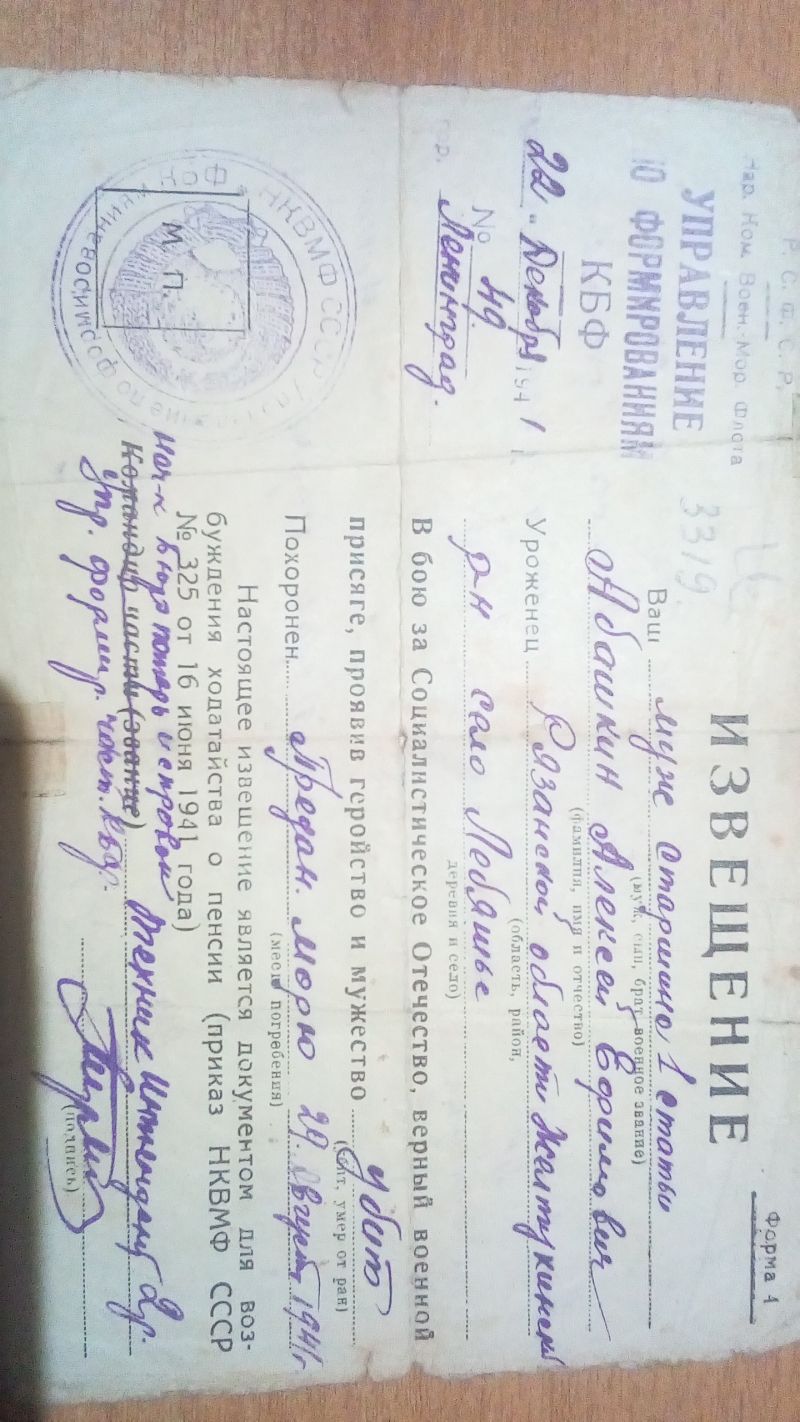 Форма 4
Р. С. Ф. С. Р.
Нар. Ком. Воен.-Мор. Флота
УПРАВЛЕНИЕ
ПО ФОРМИРОВАНИЯМ
КБФ
22 " Декабря 1941 г.
№ нд.
гор. Ленинград.
3319.
ИЗВЕЩЕНИЕ
Ваш муж Старшина 1 статьи
(муж, сын, брат военное звание)
Абашкин Алексей Ефимович
(фамилия, имя и отчество)
Уроженец Рязанской области Желтухинский
(область, район,
р-н село Лебяжье
деревня и село)
В бою за Социалистическое Отечество, верный военной
присяге, проявив геройство и мужество убит
(убит, умер от ран)
Похоронен Предан. морю 29. Августа 1941 г.
(место погребения)
Настоящее извещение является документом для воз-
буждения ходатайства о пенсии (приказ НКВМФ СССР
№ 325 от 16 июня 1941 года)
Командир части (звание)
Нач-к бюро потерь и справок Техник Интендант 2 р.
упр. формир. част. КБФ.
(подпись)
М. П.
НКВМФ СССР